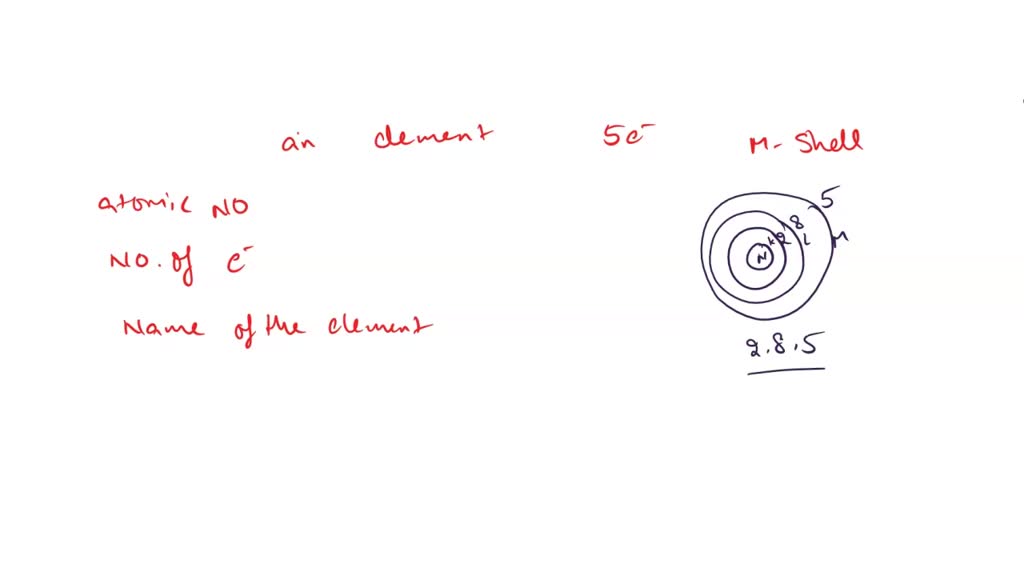 an element 5e⁻ M- Shell
atomic NO
NO. of e⁻
Name of the element
5
8
K 2 L M
N
2.8.5